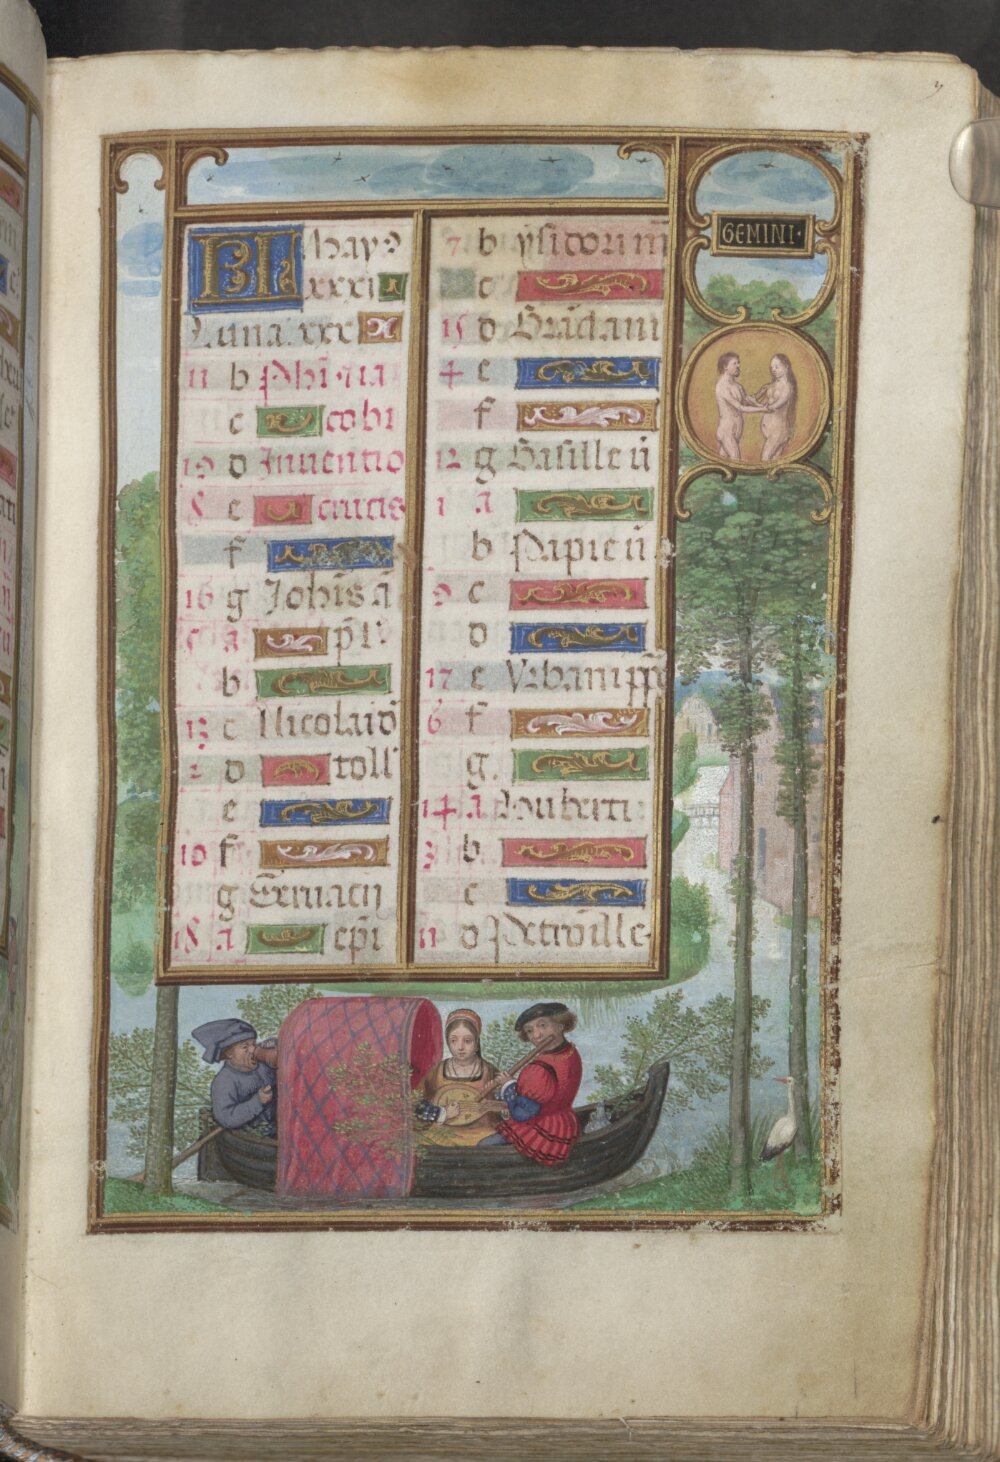 KL May
xxxi
Luna. xxx
11 b Phi. 7 ia
c cobi
19 d Inventio
8 e crucis
f
16 g Johīs ā
5 a p̄l
b
13 c Nicolai
2 d toll
e
10 f
g Servacii
18 a epī
7 b ysidori m̄
c
15 d Grāciani
4 e
f
12 g Basille ū
1 a
b Papie ū
9 c
d
17 e Urbani pp̄
6 f
g
14 a
3 b
c
11 d Petronille
GEMINI